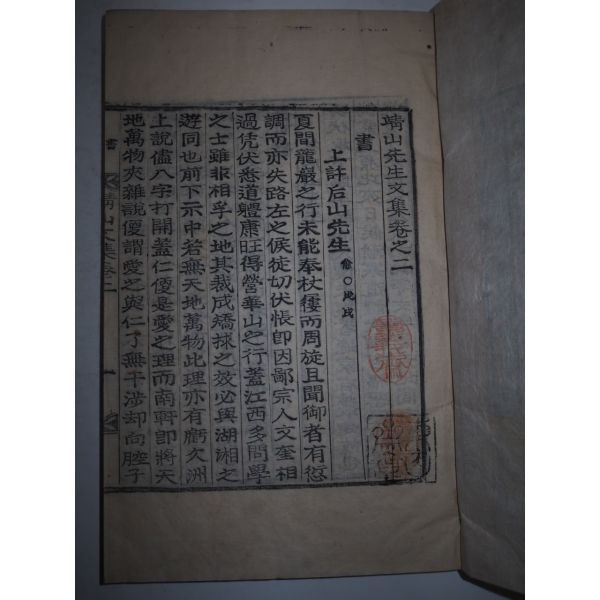 靖山先生文集卷之二
書
上許后山先生
夏間龍巖之行未能奉杖屨而周旋且聞御者有愆
調而亦失路左之候徒切伏悵卽因鄙宗人文奎相
過凭伏悉道體康旺得營華山之行蓋江西多問學
之士雖非相孚之地其裁成矯捄之效必與湖湘之
遊同也前下示中若無天地萬物此理亦有虧欠洲
上說儘八字打開蓋仁便是愛之理而南軒卽將天
地萬物夾雜說便謂愛之與仁了無干涉却向腔子
書
靖山文集卷二
一